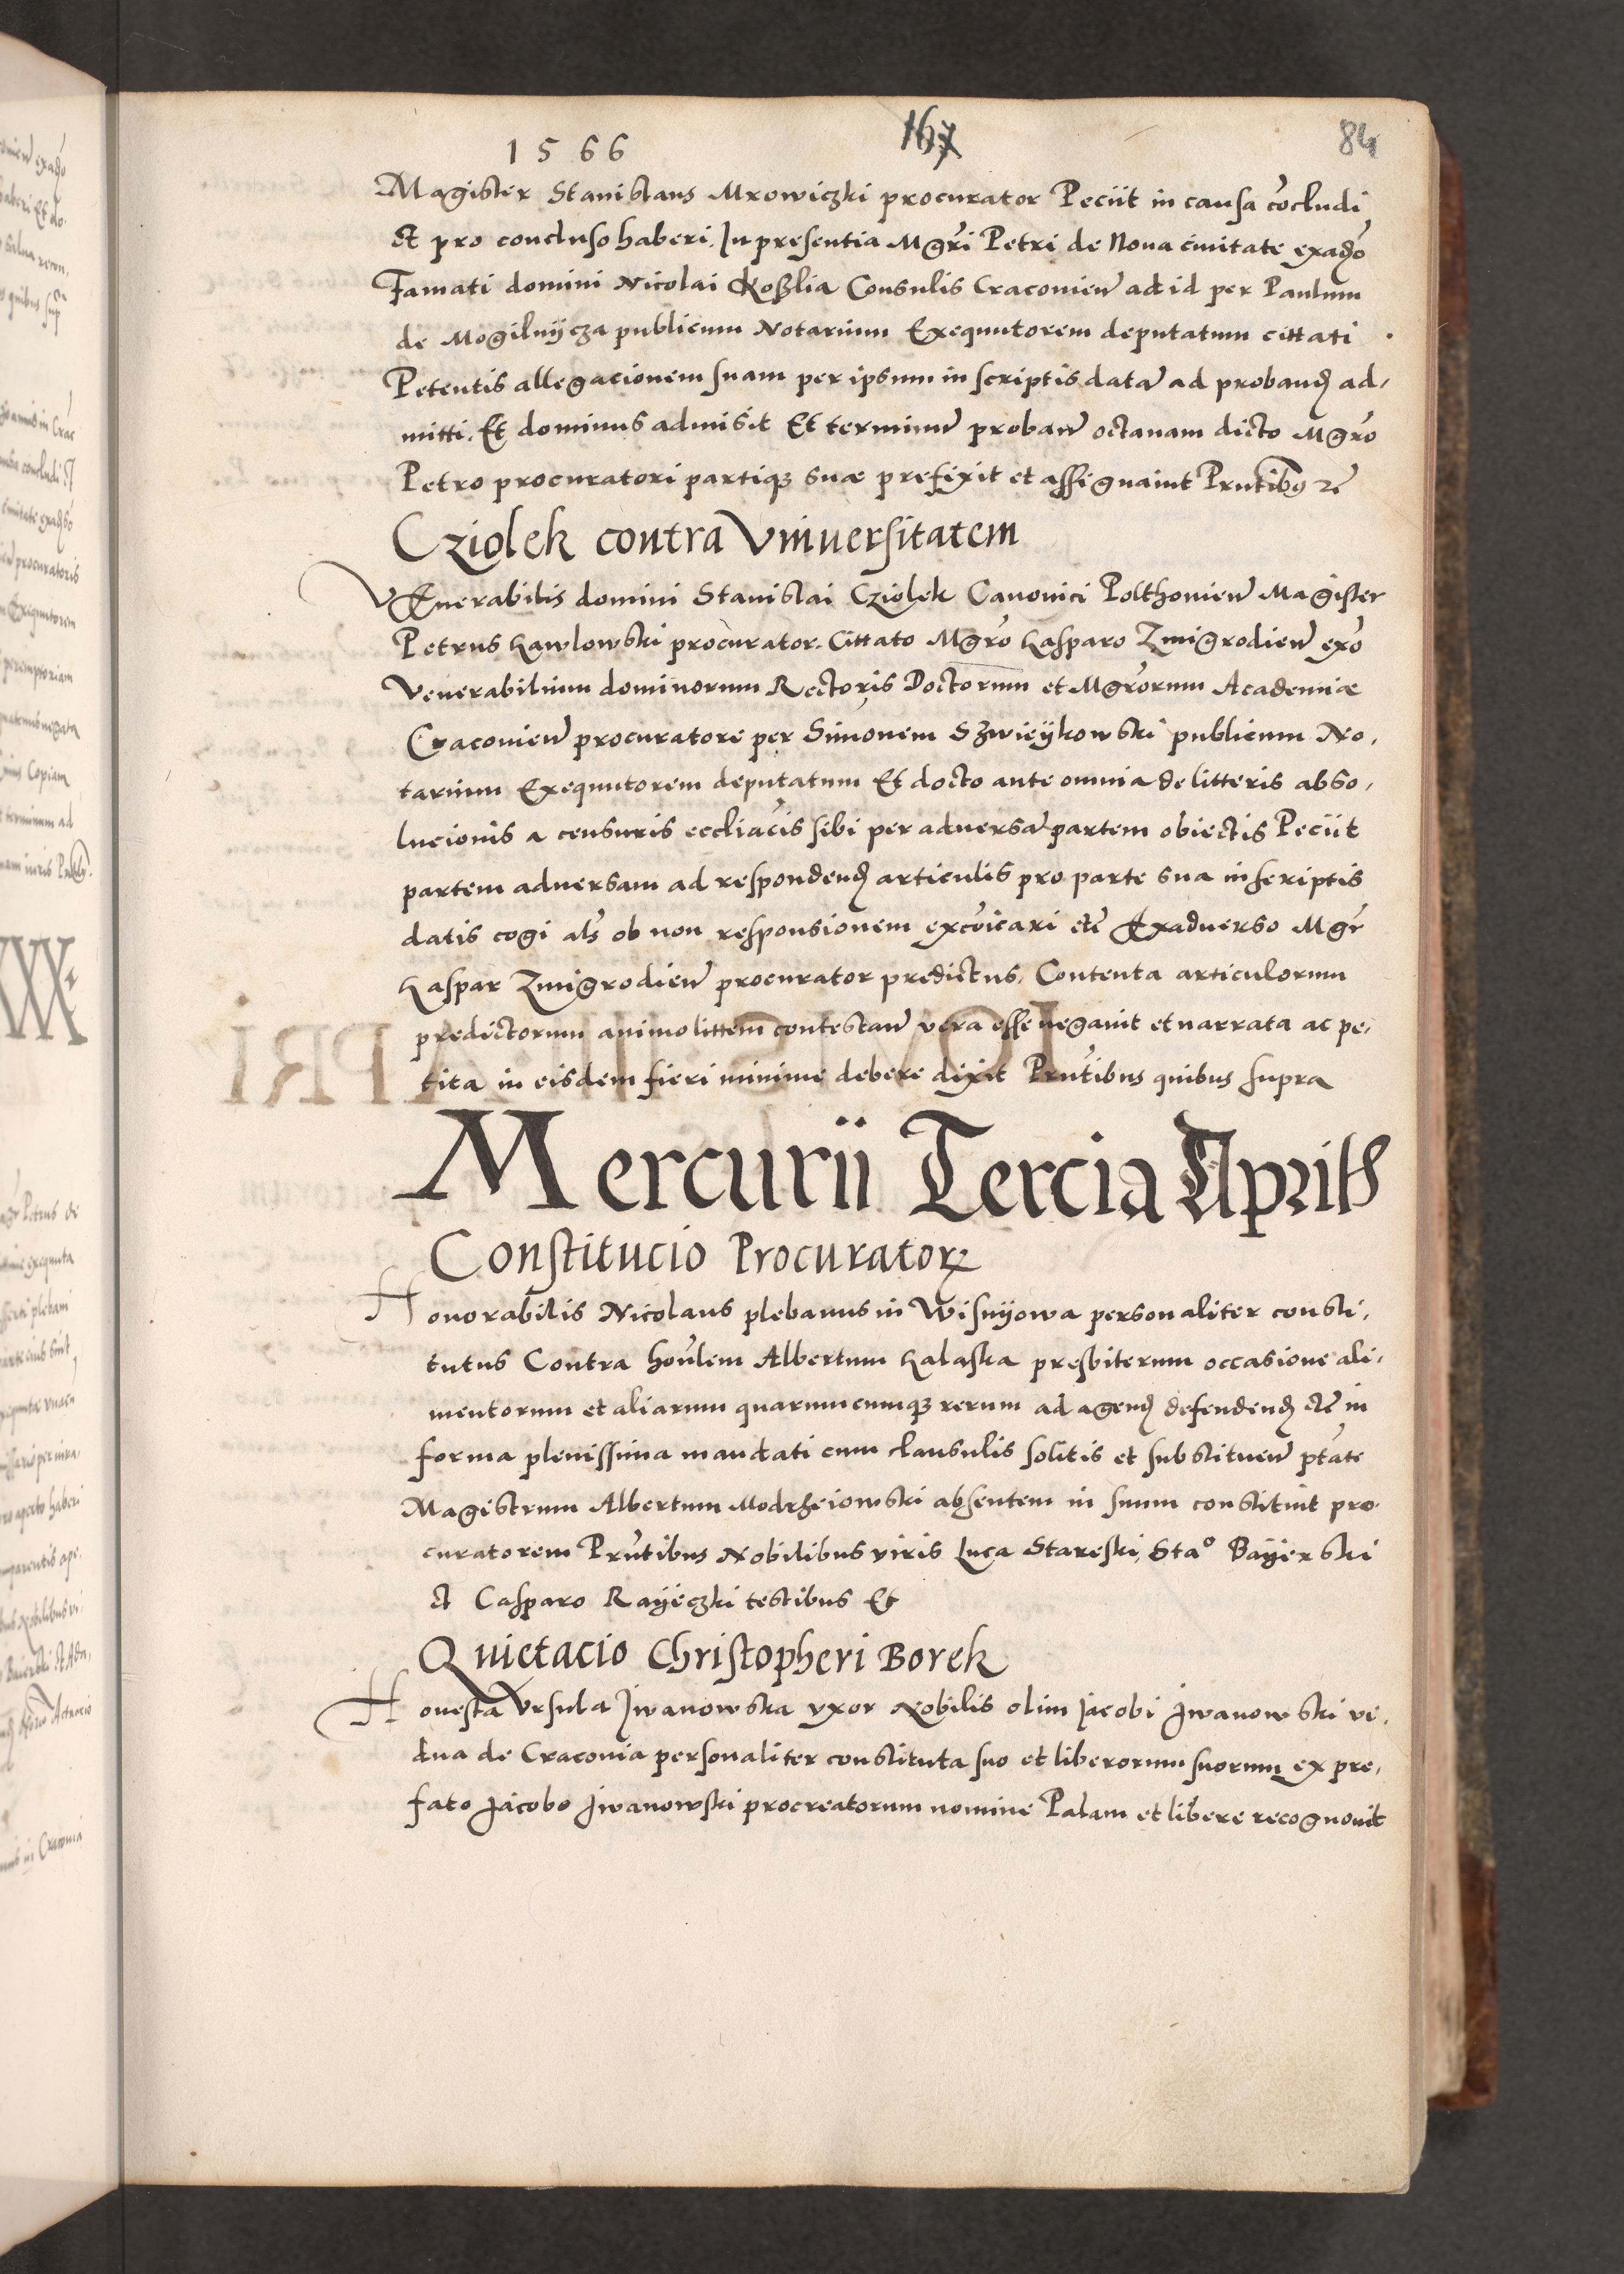 1566 167 84
Magister Stanislaus Mrowiczki procurator Peciit in causa cōcludi
Et pro concluso haberi. In presentia Mgr̄i Petri de Noua ciuitate exad̄o
Famati domini Nicolai Koslia Consulis Cracovieñ ad id per Paulum
de Mogilnijcza publicum Notarium Exequutorem deputatum cittati
Petentis allegacionem suam per ipsum in scriptis datā ad probanđ ad,
mitti. Et dominus admisit Et terminū probāń octauam dicto Mgr̄o
Petro procuratori partiqȝ suæ prefixit et assignauit Prn̄tibꝰ ꝛc̄
Cziolek contra Vniuersitatem
Venerabilis domini Stanislai Cziolek Canonici Polthouieñ Magister
Petrus Kawlowski procurator. Cittato Mgr̄o Kasparo Zmigrodieñ exo
Venerabilium dominorum Rectoris Doctorum et Mgr̄orum Academiæ
Cracovieñ procuratore per Simonem Szwieÿkowski publicum No,
tarium Exequutorem deputatum Et docto ante omnia de litteris abso,
lucionis a censuris eccliācis sibi per aduersā partem obiectis Peciit
partem aduersam ad respondenđ articulis pro parte sua in scriptis
datis cogi als̄ ob non responsionem excōicari etc̄ Exaduerso Mgr̄
Kaspar Zmigrodieñ procurator predictus, Contenta articulorum
predictorum animo littem contestañ vera esse negauit et narrata ac pe,
tita in eisdem fieri minime debere dixit Prn̄tibus quibus supra
Mercurii Tercia Aprilꝭ
Constitucio Procuratorꝝ
Honorabilis Nicolaus plebanus in Wisnijowa personaliter consti,
tutus Contra hon̄lem Albertum Kalaska presbiterum occasione ali,
mentorum et aliarum quarumcumqȝ rerum ad agenđ defendenđ etc̄ in
forma plenissima mandati cum clausulis solitis et substitueñ ptāte
Magistrum Albertum Modrzeiowski absentem in suum constituit pro
curatorem Prn̄tibus Nobilibus viris Luca Stareski, Sta° Bayerski
Et Casparo Rayeczki testibus Et
Quietacio Christopheri Borek
Honesta Vrsula Jwanowska vxor Nobilis olim Jacobi Jwanowski vi,
dua de Cracouia personaliter constituta suo et liberorum suorum ex pre,
fato Jacobo Jwanowski procreatorum nomine Palam et libere recognouit